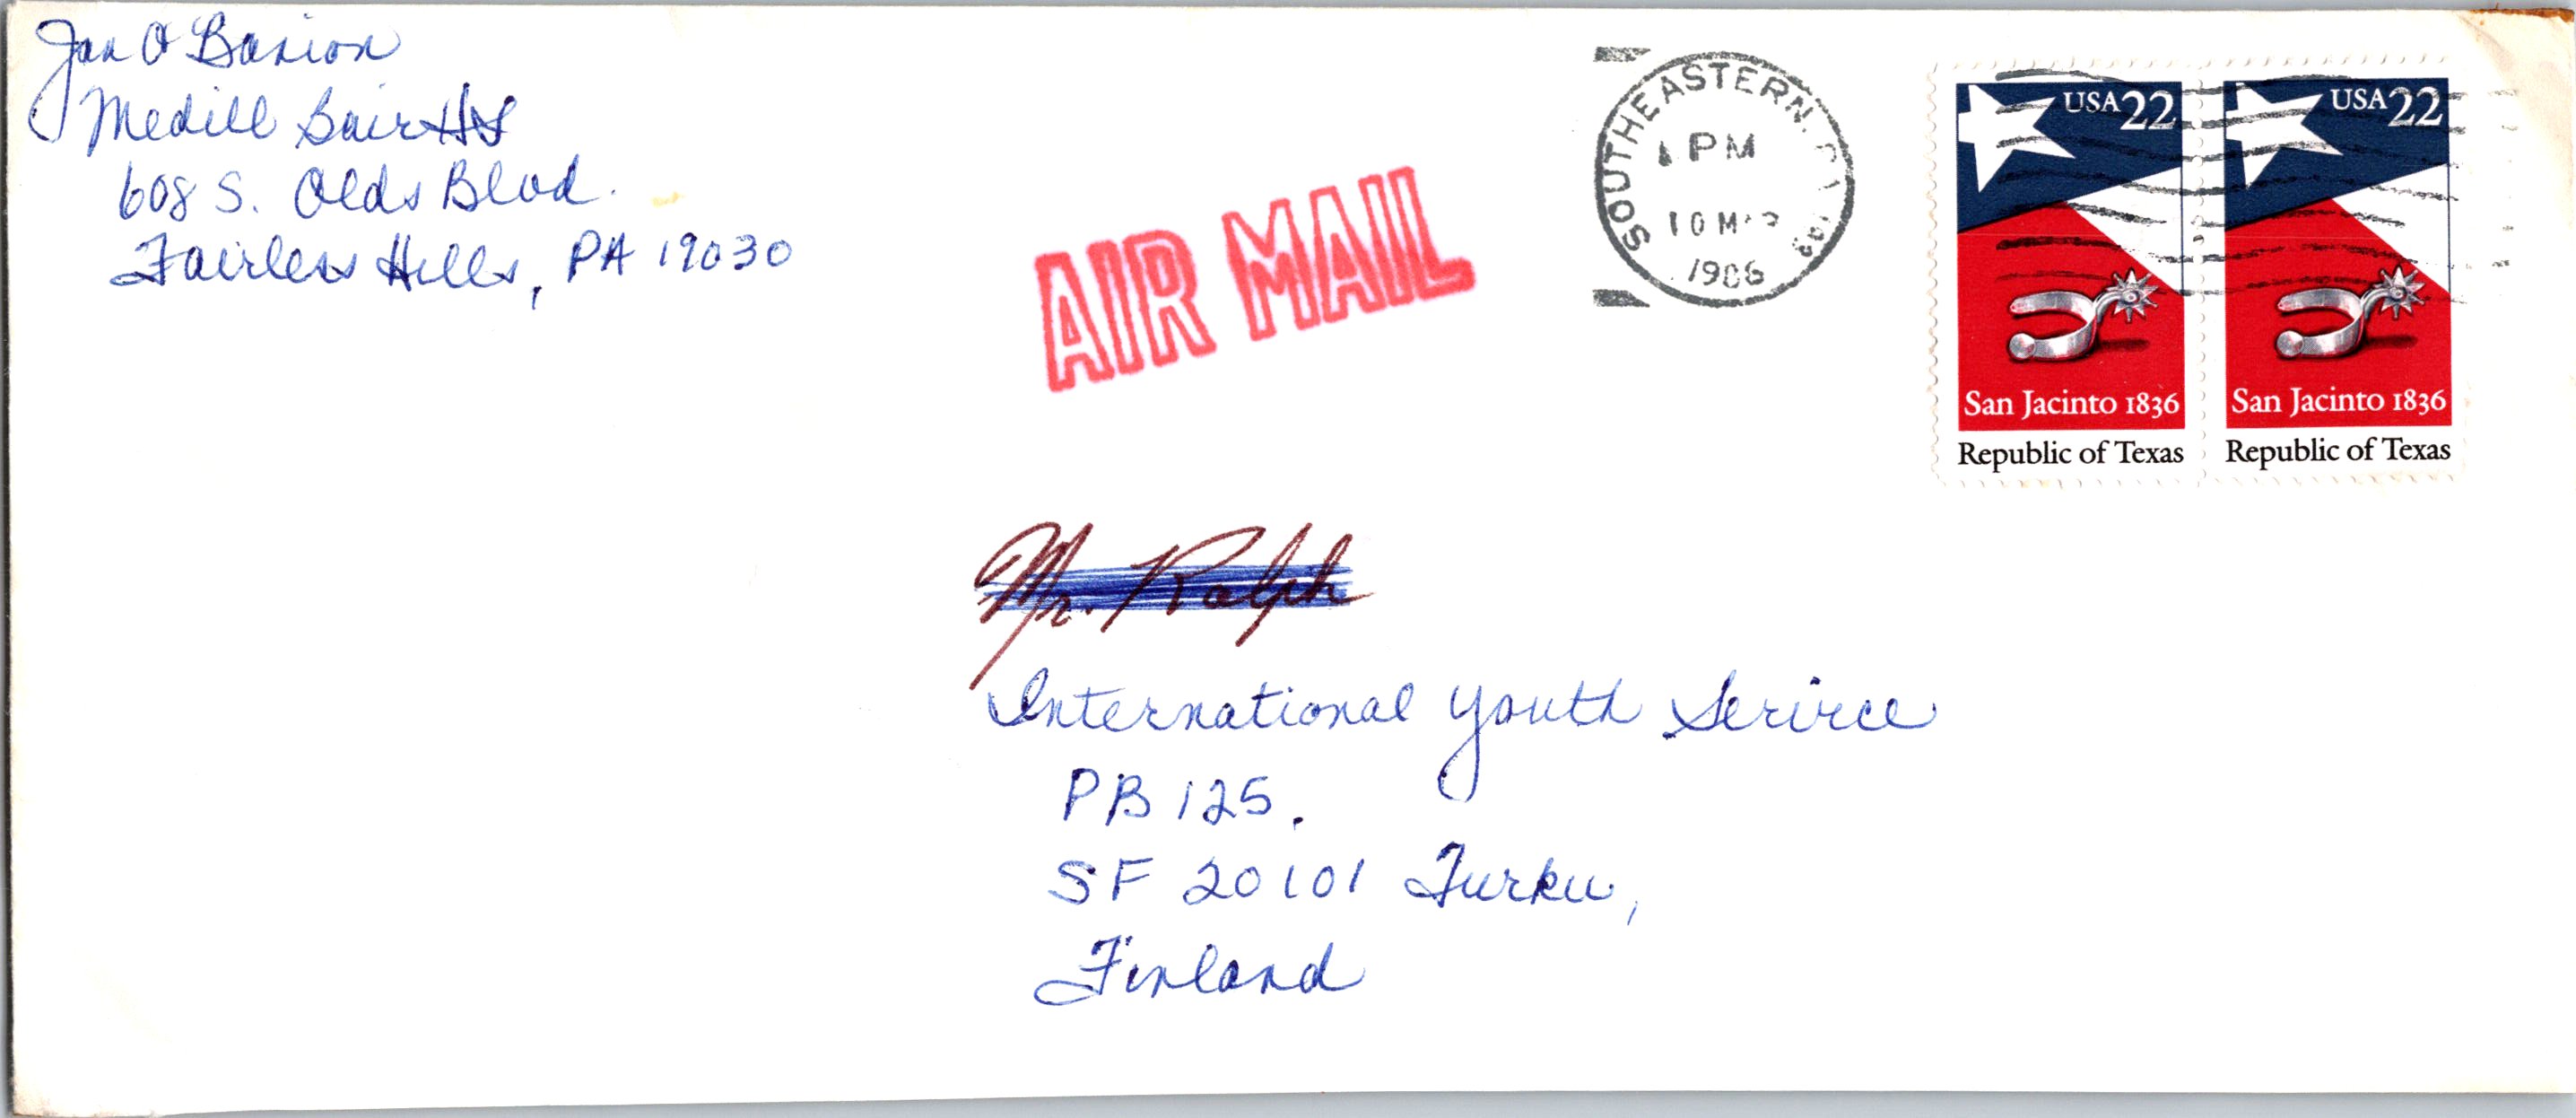 Jan O Banion
Medill Bair HS
608 S. Olds Blvd.
Fairless Hills, PA 19030
AIR MAIL
SOUTHEASTERN, PA
PM
10
1986
USA 22
San Jacinto 1836
Republic of Texas
USA 22
San Jacinto 1836
Republic of Texas
Mr. Ralph
International Youth Serirce
PB 125.
SF 20101 Turku,
Finland